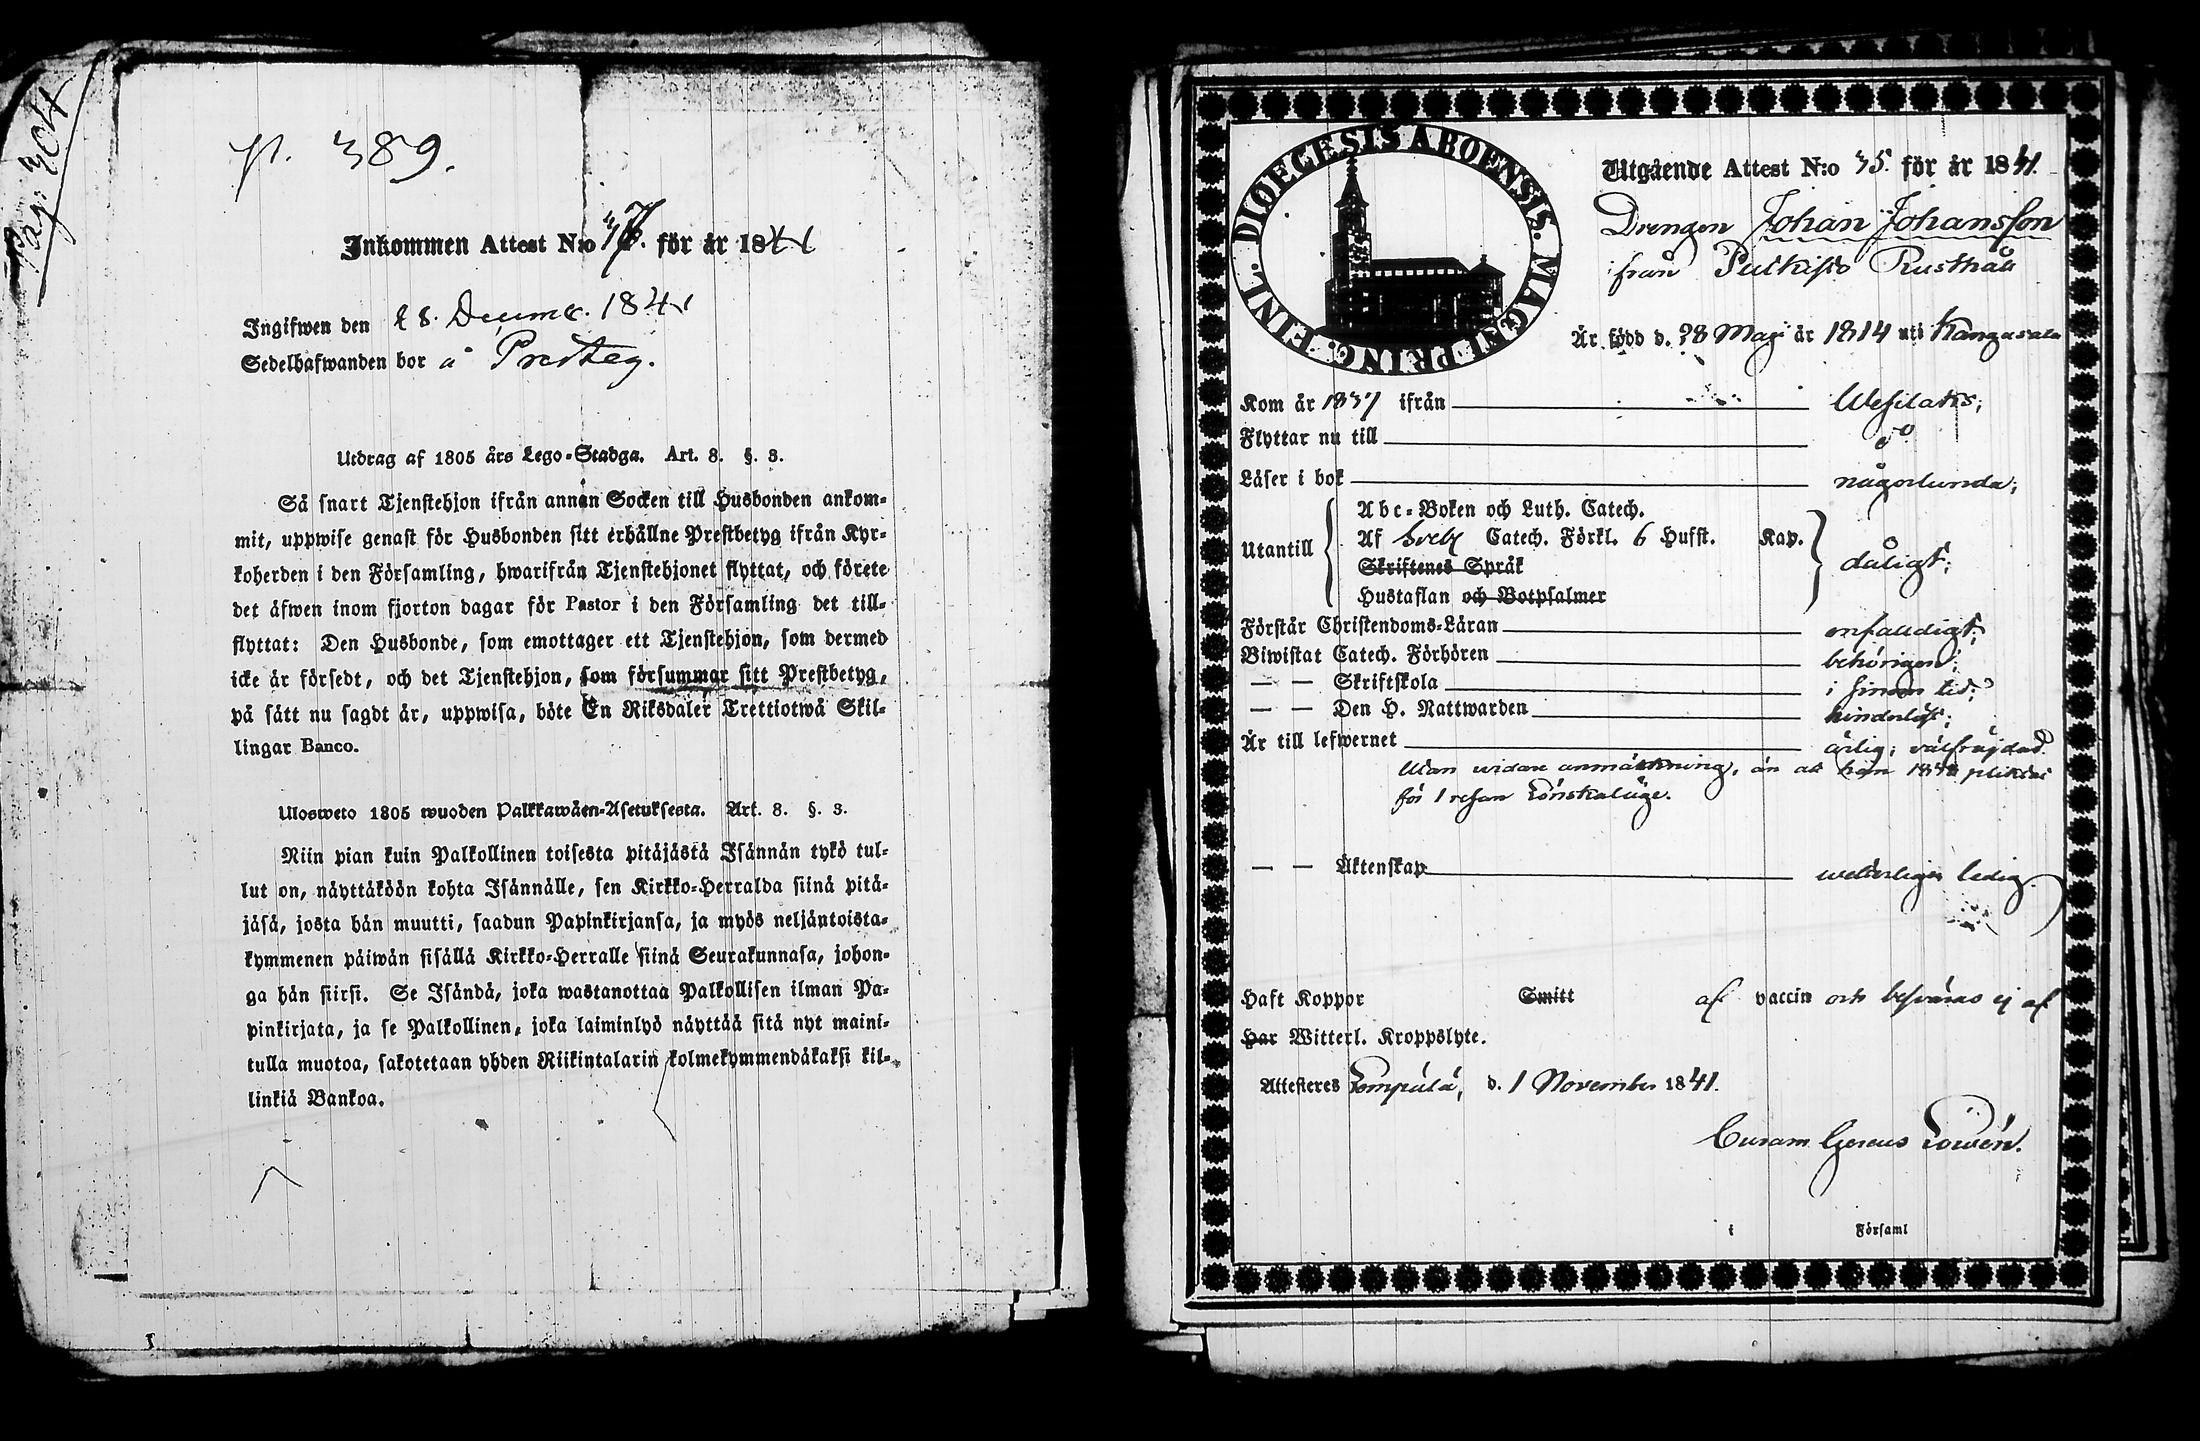 Pag: 304
p. 389.
Inkommen Attest N:o 37. för år 1841
Ingifwen den 28. Decembr. 1841
Sedelhafwanden bor å Presteg.
Utdrag af 1805 års Lego-Stadga. Art. 8. §. 3.
Så snart Tjenstehjon ifrån annan Socken till Husbonden ankom-
mit, uppwise genast för Husbonden sitt erhållne Prestbetyg ifrån Kyr-
koherden i den Församling, hwarifrån Tjenstehjonet flyttat, och förete
det äfwen inom fjorton dagar för Pastor i den Församling det till-
flyttat: Den Husbonde, som emottager ett Tjenstehjon, som dermed
icke är försedt, och det Tjenstehjon, som försummar sitt Prestbetyg,
på sätt nu sagdt är, uppwisa, böte En Riksdaler Trettiotwå Skil-
lingar Banco.
Ulosweto 1805 wuoden Palkkawäen-Asetuksesta. Art. 8. §. 3.
Niin pian kuin Palkollinen toisesta pitäjästä Isännän tykö tul-
lut on, näyttäköön kohta Isännälle, sen Kirkko-Herralda siinä pitä-
jäsä, josta hän muutti, saadun Papinkirjansa, ja myös neljäntoista-
kymmenen päiwän sisällä Kirkko-Herralle siinä Seurakunnasa, johon-
ga hän siirsi. Se Isändä, joka wastanottaa Palkollisen ilman Pa-
pinkirjata, ja se Palkollinen, joka laiminlyö näyttää sitä nyt maini-
tulla muotoa, sakotetaan yhden Riikintalarin kolmekymmendäkaksi kil-
linkiä Bankoa.
DIOECESIS ABOENSIS. MAGNI PRINC. FINL.
Utgående Attest N:o 35. för år 1841.
Drengen Johan Johansson
ifrån Pulkisto Rusthåll
Är född d. 28 Maji år 1814 uti Kangasala
Kom år 1837 ifrån Wesilaks;
Flyttar nu till
Läser i bok någorlunda;
Abc-Boken och Luth. Catech.
Utantill Af Sveb. Catech. Förkl. 6 Hufst. Kap. dåligt;
Skriftenes Språk
Hustaflan och Botpsalmer
Förstår Christendoms-Läran enfaldigt;
Biwistat Catech. Förhören behörigen;
— — Skriftskola i sinom tid;
— — Den H. Nattwarden hinderlöst;
Är till lefwernet ärlig; välfräjdad
utan vidare anmärkning, än att han 1840 pliktat
för 1 resan Lönskaläge.
— — Äktenskap weterligen ledig.
Haft Koppor Smitt af vaccin och besväras ej af
Har Witterl. Kroppslyte.
Attesteres Lempälä, d. 1 November 1841.
Curam Gerens Lowén.
i Församl